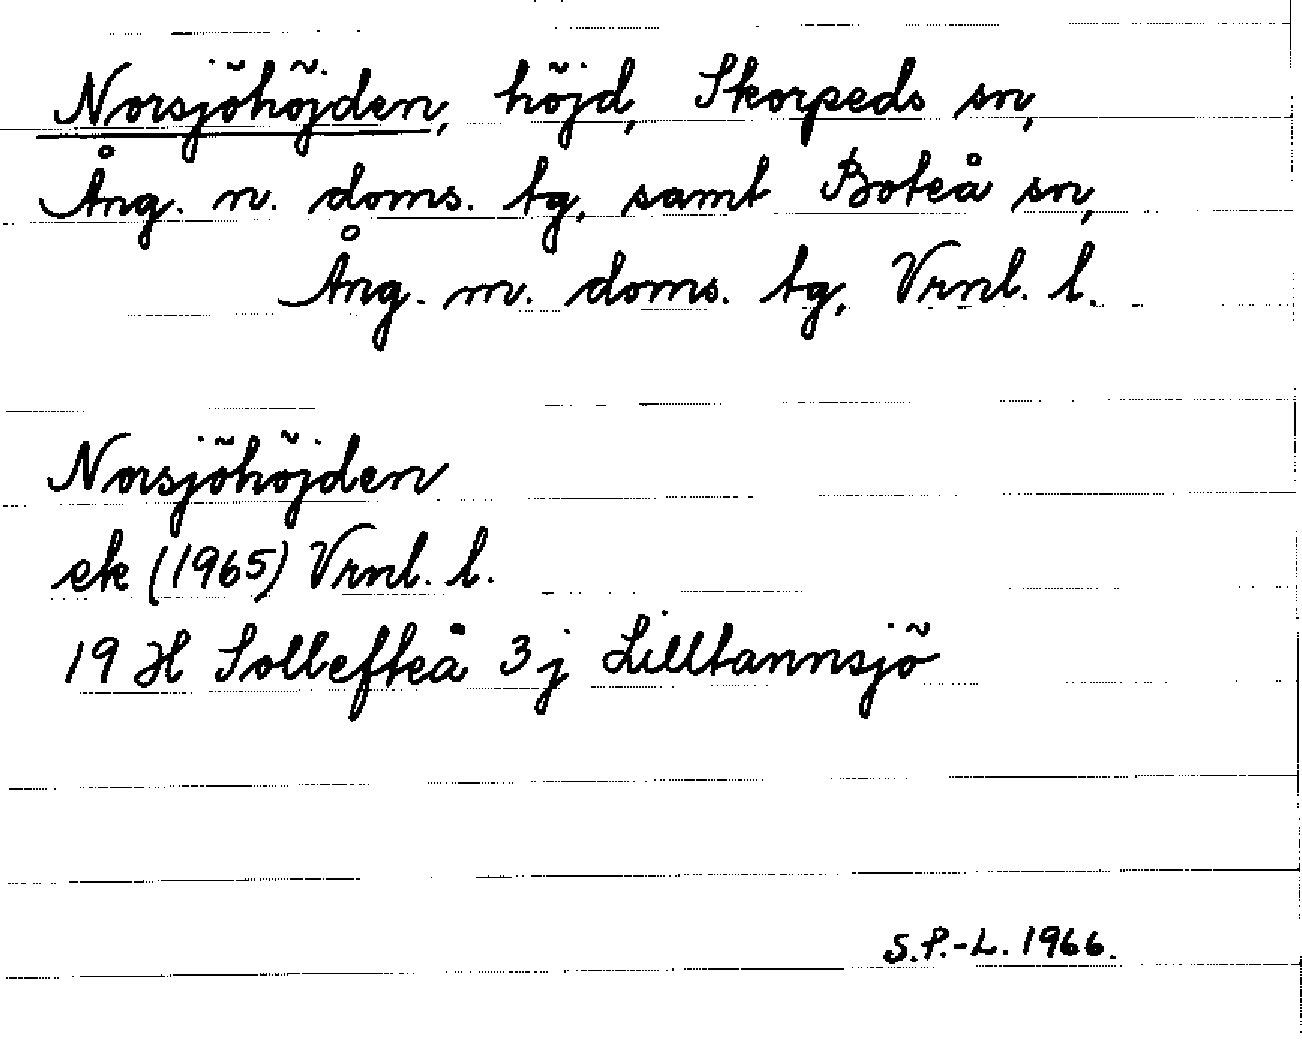 Norsjöhöjden, höjd, Skorpeds sn,
Ång. n. doms. tg, samt Boteå sn,
Ång. m. doms. tg, Vrnl. l.
Norsjöhöjden
ek (1965) Vrnl. l.
19 H Sollefteå 3 j Lilltannsjö
S.P.-L. 1966.